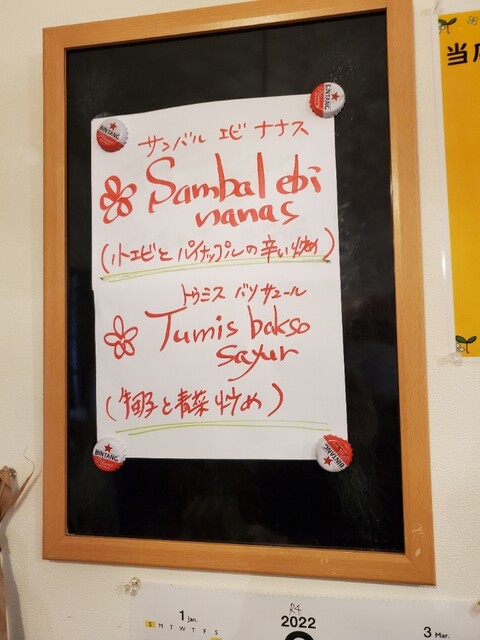 サンバル エビ ナナス
Sambal ebi
nanas
(小エビとパイナップルの辛い炒め)
トゥミス バソ サユール
Tumis bakso
sayur
(肉団子と青菜炒め)
BINTANG
BINTANG
BINTANG
BINTANG
当
1 Jan.
S M T W T F S
R4
2022
3 Mar.